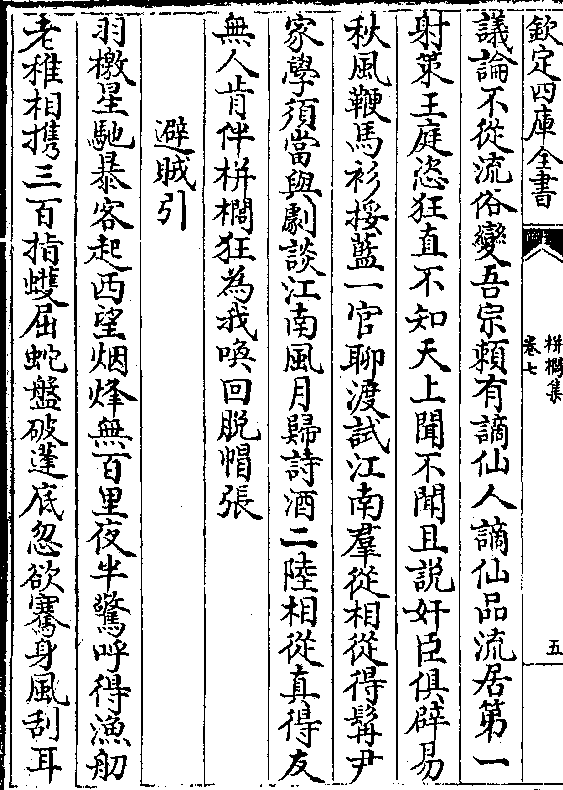 欽定四庫全書
栟櫚集
卷七
五
議論不從流俗變吾宗頼有謫仙人謫仙品流居第一
射策王庭恣狂直不知天上聞不聞且說奸臣俱辟易
秋風鞭馬衫挼藍一官聊渡試江南羣從相從得髯尹
家學須當與劇談江南風月歸詩酒二陸相從真得友
無人肯伴栟櫚狂為我喚回脫帽張
避賊引
羽檄星馳暴客起西望烟烽無百里夜半驚呼得漁舠
老稚相攜三百指蠖屈蛇盤破蓬底忽欲騫身風刮耳